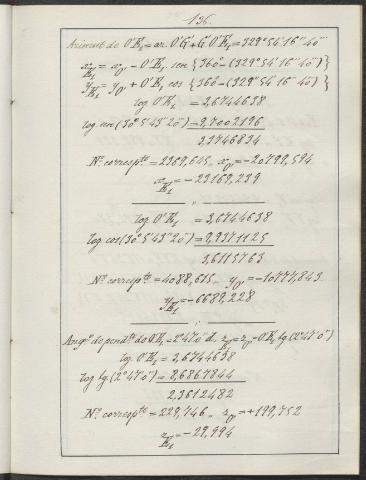 136.
Azimut do O'E₁ = az. O'G + G O'E₁ = 329° 54' 16" 40'''
x_E₁ = x_O' - O'E₁ sen {360 - (329° 54' 16" 40''')}
y_E₁ = y_O' + O'E₁ cos {360 - (329° 54' 16" 40''')}
log O'E₁ = 3,6744638
log sen (30° 5' 43" 20''') = 9,7002196
3,3746834
Nº correspᵗᵉ = 2369,645, x_O' = -20799,594
x_E₁ = -23169,239
log O'E₁ = 3,6744638
log cos (30° 5' 43" 20''') = 9,9371125
3,6115763
Nº correspᵗᵉ = 4088,615, y_O' = -10777,843
y_E₁ = -6689,228
Angº do pendᵗᵉ do O'E₁ = 2° 47' 0" d. z_E₁ = z_O' - O'E₁ tg. (2° 47' 0")
log. O'E₁ = 3,6744638
log tg. (2° 47' 0") = 8,6867844
2,3612482
Nº correspᵗᵉ = 229,746, z_O' = +199,752
z_E₁ = -29,994